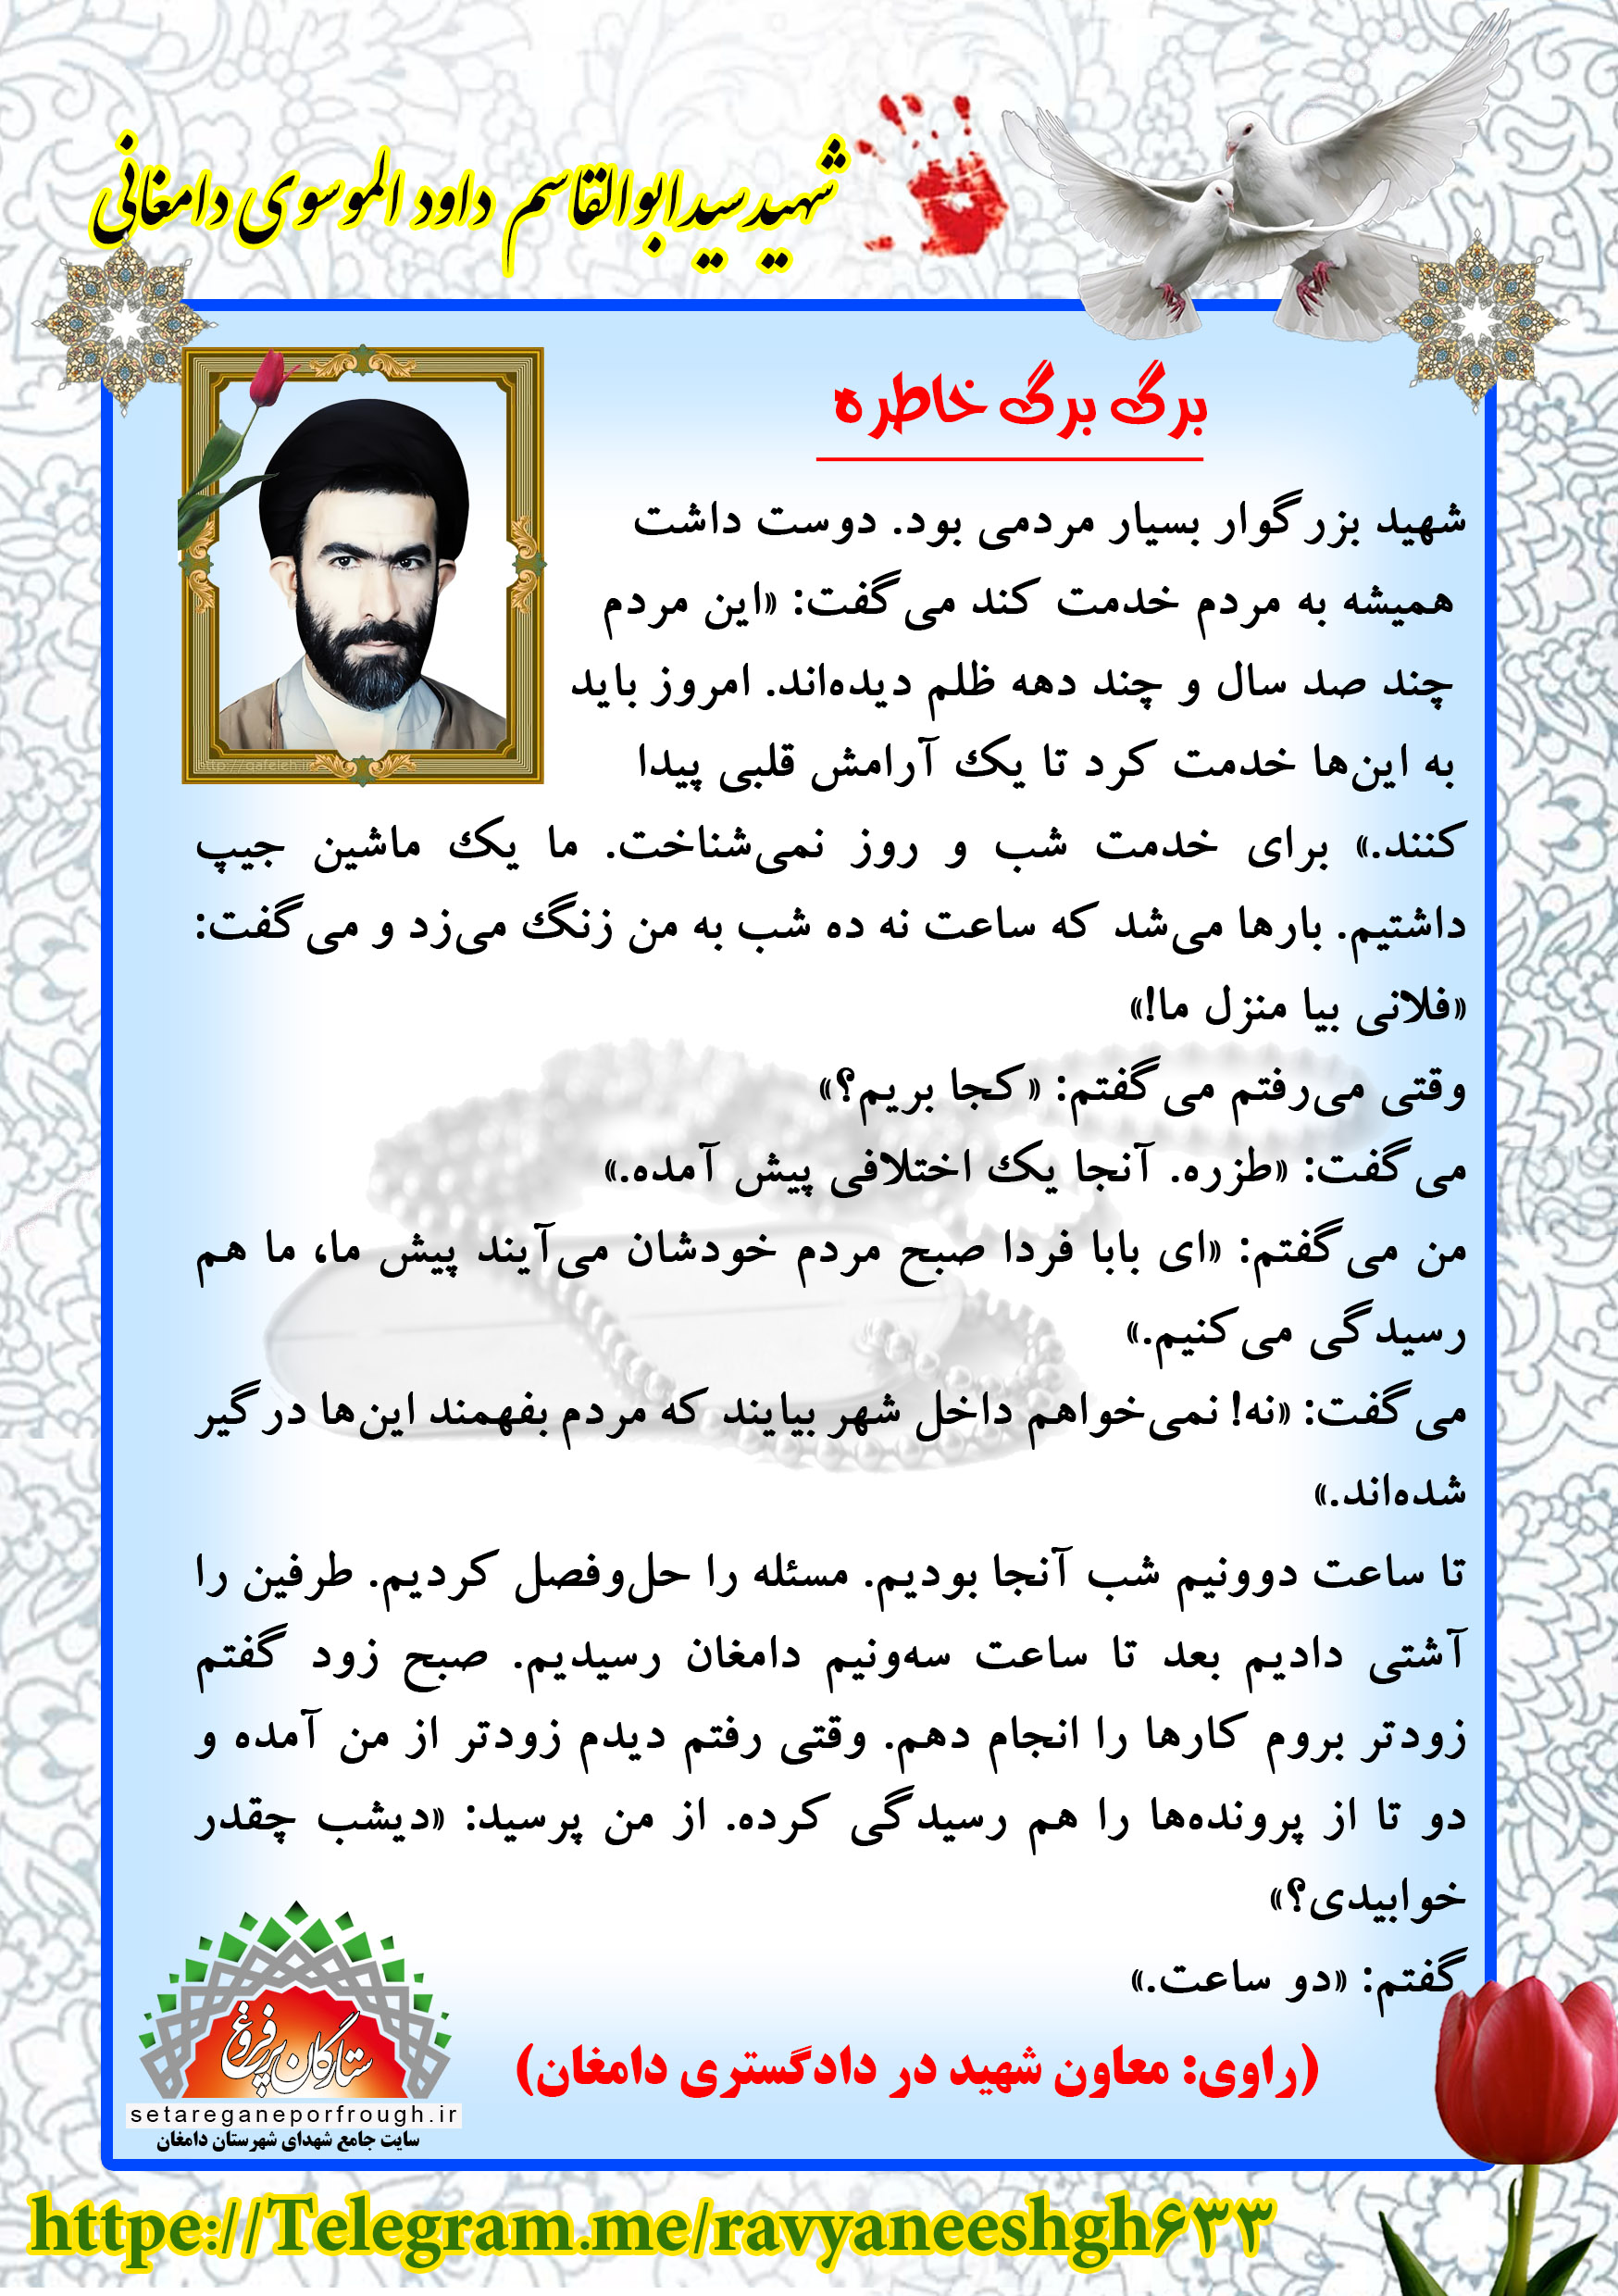 شهید سید ابوالقاسم داود الموسوی دامغانی
برگ برگ خاطره
شهید بزرگوار بسیار مردمی بود. دوست داشت
همیشه به مردم خدمت کند می‌گفت: «این مردم
چند صد سال و چند دهه ظلم دیده‌اند. امروز باید
به این‌ها خدمت کرد تا یک آرامش قلبی پیدا
کنند.» برای خدمت شب و روز نمی‌شناخت. ما یک ماشین جیپ
داشتیم. بارها می‌شد که ساعت نه ده شب به من زنگ می‌زد و می‌گفت:
«فلانی بیا منزل ما!»
وقتی می‌رفتم می‌گفتم: «کجا بریم؟»
می‌گفت: «طزره. آنجا یک اختلافی پیش آمده.»
من می‌گفتم: «ای بابا فردا صبح مردم خودشان می‌آیند پیش ما، ما هم
رسیدگی می‌کنیم.»
می‌گفت: «نه! نمی‌خواهم داخل شهر بیایند که مردم بفهمند این‌ها درگیر
شده‌اند.»
تا ساعت دوونیم شب آنجا بودیم. مسئله را حل‌وفصل کردیم. طرفین را
آشتی دادیم بعد تا ساعت سه‌ونیم دامغان رسیدیم. صبح زود گفتم
زودتر بروم کارها را انجام دهم. وقتی رفتم دیدم زودتر از من آمده و
دو تا از پرونده‌ها را هم رسیدگی کرده. از من پرسید: «دیشب چقدر
خوابیدی؟»
گفتم: «دو ساعت.»
(راوی: معاون شهید در دادگستری دامغان)
http://qafeleh.ir
ستارگان پرفروغ
setareganeporfrough.ir
سایت جامع شهدای شهرستان دامغان
httpe://Telegram.me/ravyaneeshgh۶۳۳